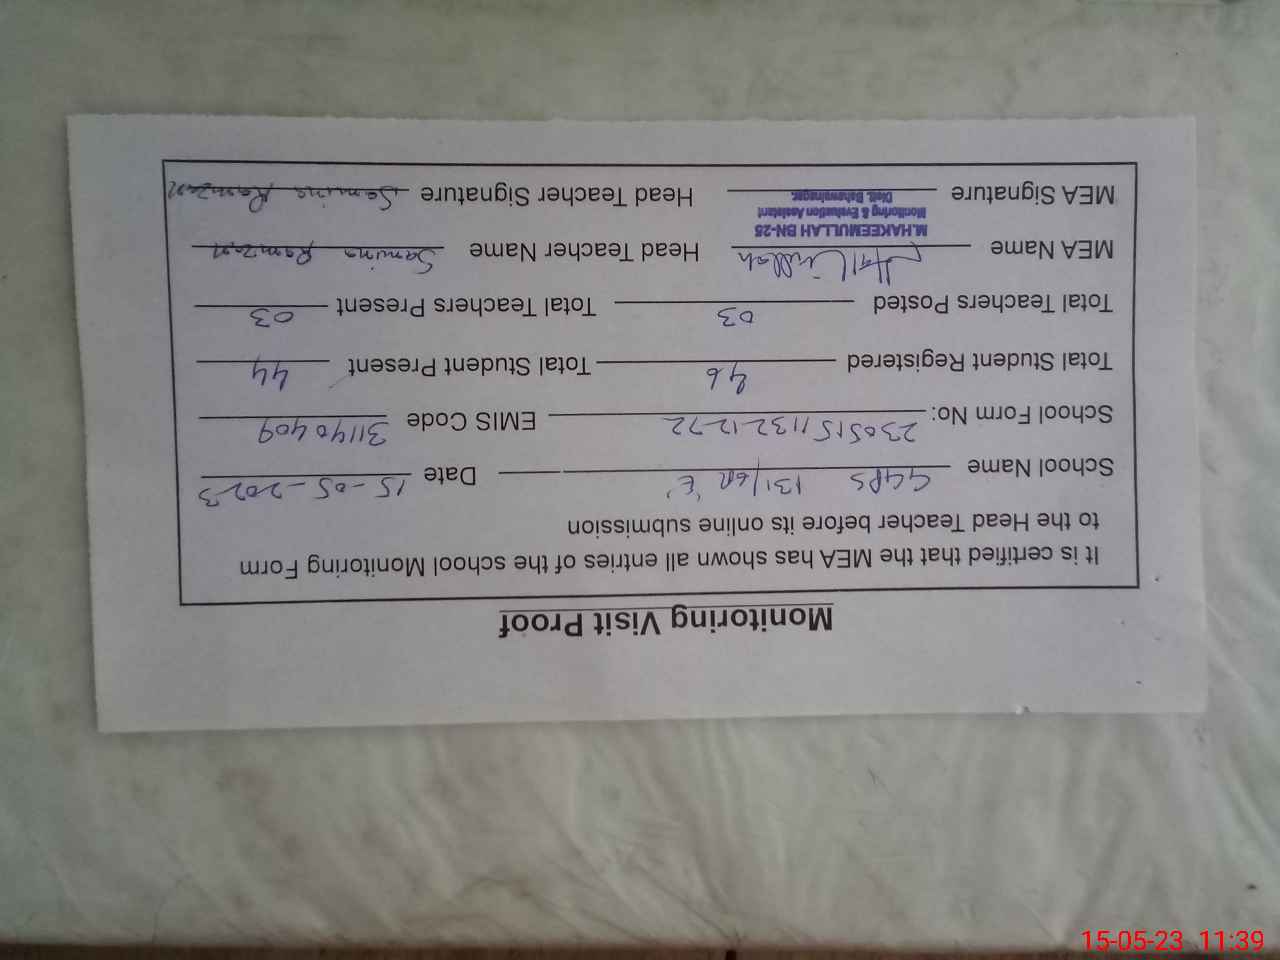 Monitoring Visit Proof
It is certified that the MEA has shown all entries of the school Monitoring Form
to the Head Teacher before its online submission
School Name GGPS 131/6R 'E' Date 15-05-2023
School Form No: 230515113212-72 EMIS Code 31140409
Total Student Registered 46 Total Student Present 44
Total Teachers Posted 03 Total Teachers Present 03
MEA Name Head Teacher Name Samina Ramzan
M.HAKEEMULLAH BN-25
Monitoring & Evaluation Assistant
Distt. Bahawalnagar.
MEA Signature Head Teacher Signature Samina Ramzan
15-05-23 11:39